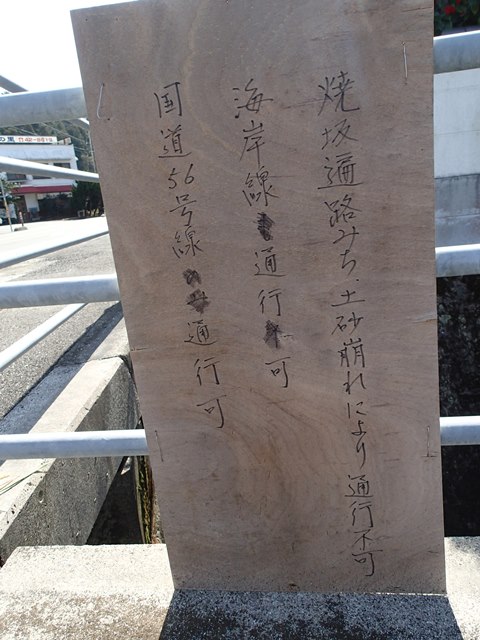 焼坂遍路みち土砂崩れにより通行不可
海岸線通行可
国道56号線通行可